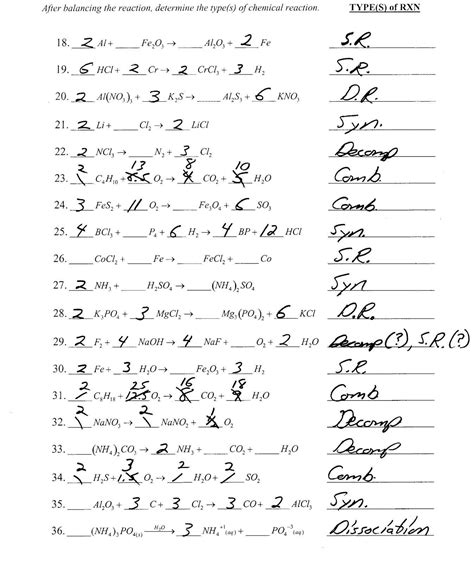 After balancing the reaction, determine the type(s) of chemical reaction. TYPE(S) of RXN
18. 2 Al + ___ Fe₂O₃ → ___ Al₂O₃ + 2 Fe S.R.
19. 6 HCl + 2 Cr → 2 CrCl₃ + 3 H₂ S.R.
20. 2 Al(NO₃)₃ + 3 K₂S → ___ Al₂S₃ + 6 KNO₃ D.R.
21. 2 Li + ___ Cl₂ → 2 LiCl Syn.
22. 2 NCl₃ → ___ N₂ + 3 Cl₂ Decomp
23. 2 C₄H₁₀ + 13 O₂ → 8 CO₂ + 10 H₂O Comb.
24. 3 FeS₂ + 11 O₂ → ___ Fe₃O₄ + 6 SO₃ Comb.
25. 4 BCl₃ + ___ P₄ + 6 H₂ → 4 BP + 12 HCl Syn.
26. ___ CoCl₂ + ___ Fe → ___ FeCl₂ + ___ Co S.R.
27. 2 NH₃ + ___ H₂SO₄ → ___ (NH₄)₂SO₄ Syn
28. 2 K₃PO₄ + 3 MgCl₂ → ___ Mg₃(PO₄)₂ + 6 KCl D.R.
29. 2 F₂ + 4 NaOH → 4 NaF + ___ O₂ + 2 H₂O Decomp(?), S.R.(?)
30. 2 Fe + 3 H₂O → ___ Fe₂O₃ + 3 H₂ S.R.
31. 2 C₈H₁₈ + 25 O₂ → 16 CO₂ + 18 H₂O Comb
32. 2 NaNO₃ → 2 NaNO₂ + O₂ Decomp
33. ___ (NH₄)₂CO₃ → 2 NH₃ + ___ CO₂ + ___ H₂O Decomp
34. 2 H₂S + 3 O₂ → 2 H₂O + 2 SO₂ Comb.
35. ___ Al₂O₃ + 3 C + 3 Cl₂ → 3 CO + 2 AlCl₃ Syn.
36. ___ (NH₄)₃PO₄₍ₛ₎ —H₂O→ 3 NH₄⁺¹ (aq) + ___ PO₄⁻³ (aq) Dissociation